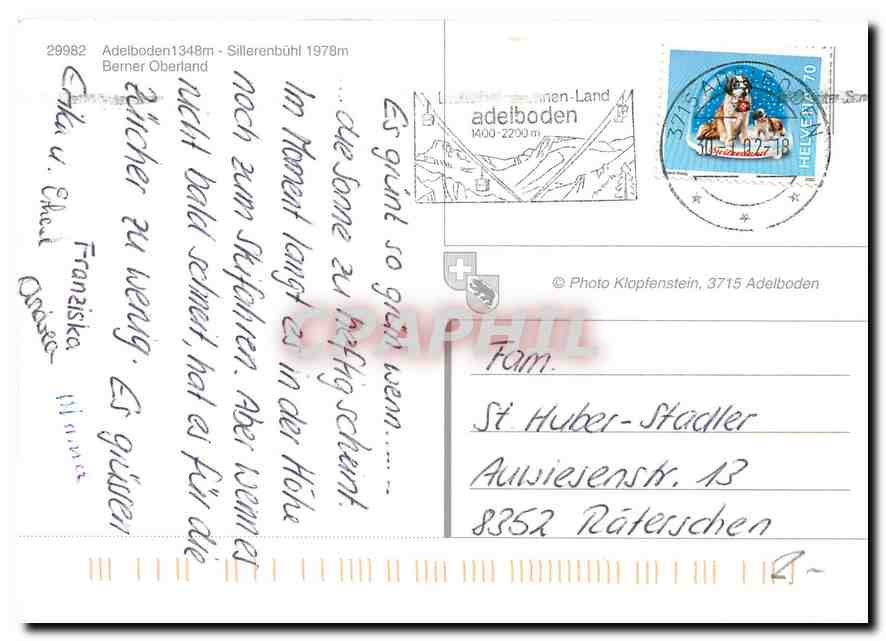 29982 Adelboden1348m - Sillerenbühl 1978m
Berner Oberland
Es grünt so grün wenn......
...die Sonne zu heftig scheint.
Im Moment langt es in der Höhe
noch zum Skifahren. Aber wenn es
nicht bald schneit, hat es für die
Zürcher zu wenig. Es grüssen
Erika u.
Franziska
adelboden
1400-2200 m
3715 ADELBODEN
30.-1.02-18
HELVETIA 70
© Photo Klopfenstein, 3715 Adelboden
Fam.
St. Huber-Stadler
Auwiesenstr. 13
8352 Räterschen
2.-
CPAPHIL